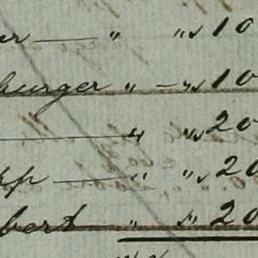 er — " " " 10
burger " — " " 10
— " " " 20
pp — " " " 20
bert " " " 20